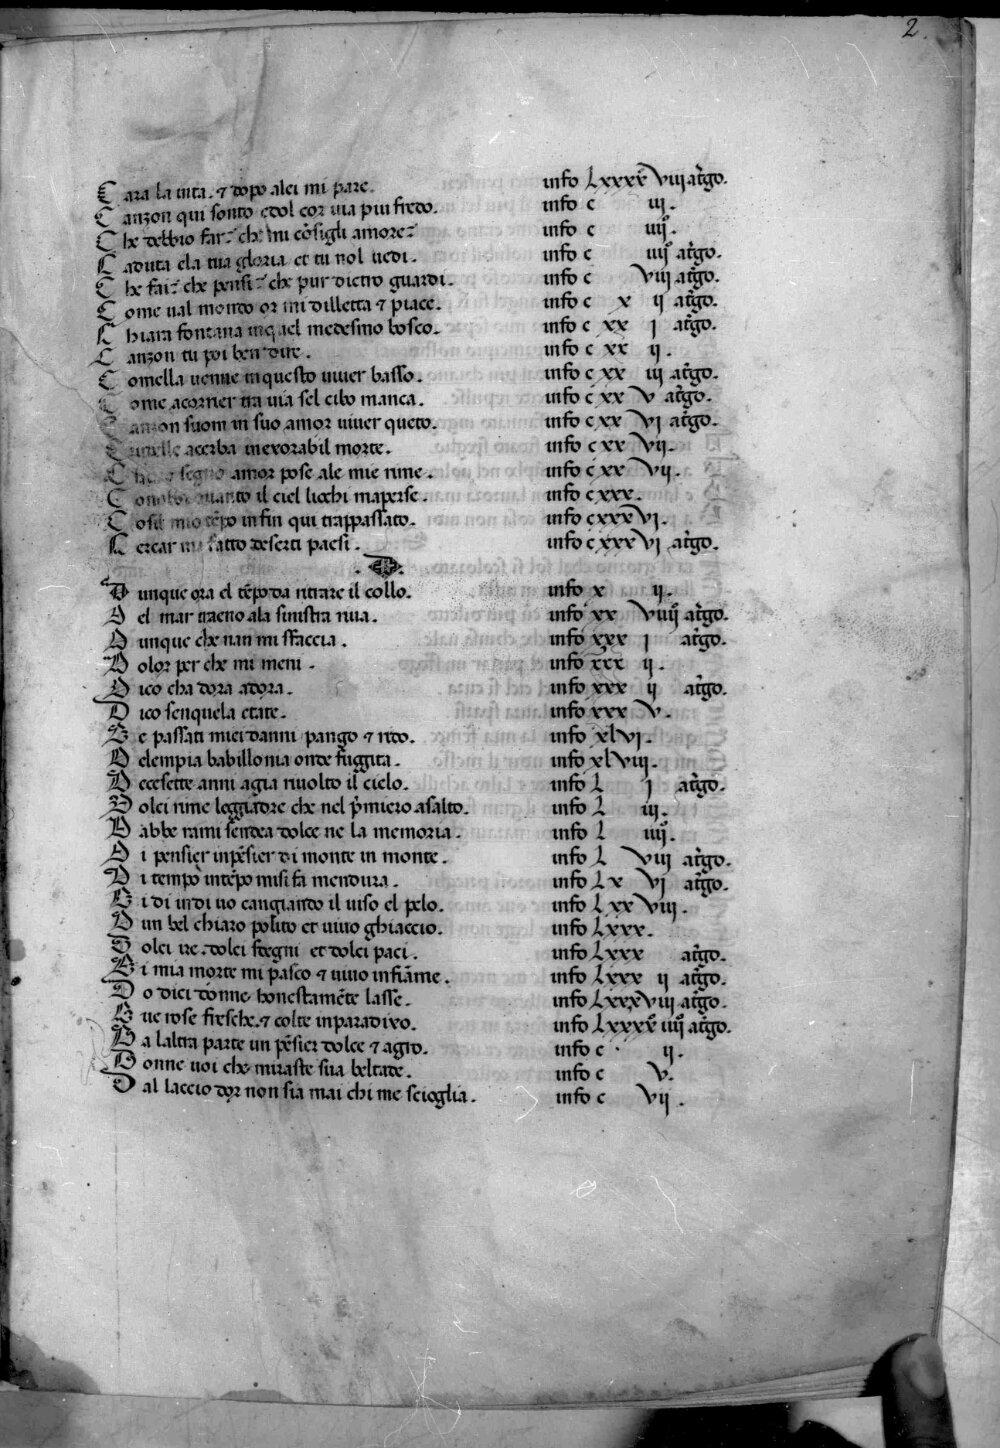 2.
Cara la uita. & dopo alei mi pare. info Lxxxx viii atrgo.
Canzon qui sonto edol cor uia piu fredo. info c iii.
Che debbio far. che mi cōsigli amore. info c iiii.
Caduta ela tua gloria et tu nol uedi. info c iiii atrgo.
Che fai. che pensi. che pur dietro guardi. info c viii atrgo.
Come ual mondo or mi dilletta & piace. info c x ii atrgo.
Chiara fontana in quel medesmo bosco. info c xx i atrgo.
Canzon tu poi ben dire. info c xx ii.
Comella uenne in questo uiuer basso. info c xx iii atrgo.
Come acorrier tra uia sel cibo manca. info c xx v atrgo.
Canzon suom in suo amor uiuer queto. info c xx vi atrgo.
acerba inexorabil morte. info c xx vii.
segno amor pose ale mie rime. info c xx vii.
quanto il ciel liochi maperse. info c xxx.
Cosi mio tēpo infin qui trappassato. info c xxx vi.
Cercar fatto deserti paesi. info c xxx vi atrgo.
. D .
Dunque ora el tēpo da ritrare il collo. info x ii.
Del mar tireno ala sinistra riua. info xx viiii atrgo.
Dunque che nan mi sfaccia. info xxx i atrgo.
Dolor per che mi meni. info xxx ii.
Dico cha dora adora. info xxx ii atrgo.
Dico senquela etate. info xxx v.
De passati miei danni pango & rido. info xlvi.
Delempia babillonia onde fuggita. info xlviii.
Decesette anni agia riuolto il cielo. info L i atrgo.
Dolci rime leggiadre che nel p̄miero asalto. info L iii.
Dabbe rami scendea dolce ne la memoria. info L iiii.
Di pensier inpēsier di monte in monte. info L viii atrgo.
Di tempo intēpo misi fa mendura. info L x vi atrgo.
Di di indi uo cangiando il uiso el pelo. info L xx viii.
Dun bel chiaro polito et uiuo ghiaccio. info Lxxx.
Dolci ire. dolci sdegni et dolci paci. info Lxxx atrgo.
Di mia morte mi pasco & uiuo infiāme. info Lxxx ii atrgo.
Do dici donne honestamēte lasse. info Lxxxviii atrgo.
Due rose fresche. & colte inparadixo. info Lxxxx iiii atrgo.
Da laltra parte un pēsier dolce & agro. info c ii.
Donne uoi che miraste sua beltade. info c v.
Dal laccio dor non sia mai chi me scioglia. info c vii.